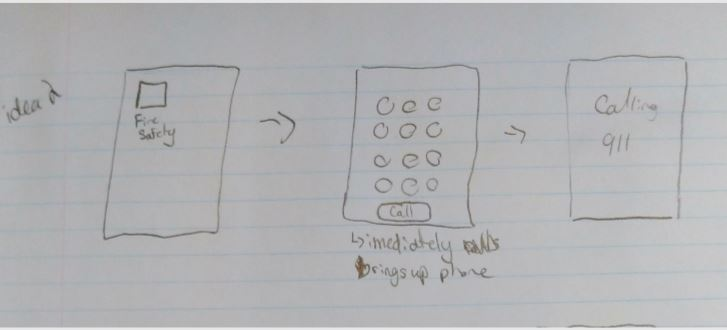 idea 2
Fire
Safety
Call
↳ imediately
brings up phone
Calling
911